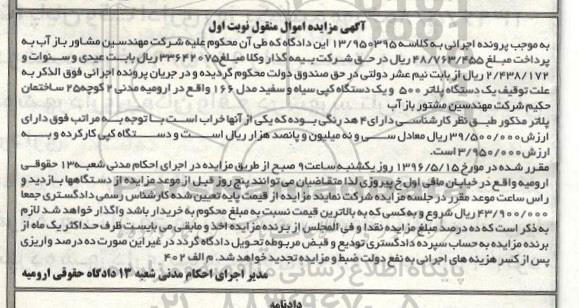 آگهی مزایده اموال منقول نوبت اول
به موجب پرونده اجرائی به کلاسه ۱۳/۹۵۰۳۹۵ این دادگاه که طی آن محکوم علیه شرکت مهندسین مشاور باز آب به
پرداخت مبلغ ۴۸/۷۶۳/۴۵۵ ریال در حق شرکت بیمه گذار وکلا مبلغ ۳۳۶۴۲۰۷۵ ریال بابت عیدی و سنوات و
۲/۴۳۸/۱۷۲ ریال از بابت نیم عشر دولتی در حق صندوق دولت محکوم گردیده و در جریان پرونده اجرائی فوق الذکر به
علت توقیف یک دستگاه پلاتر ۵۰۰ و یک دستگاه کپی سیاه و سفید مدل ۱۶۶ واقع در ارومیه مدنی ۲ کوچه ۲۵ ساختمان
حکیم شرکت مهندسین مشاور باز آب
پلاتر مذکور طبق نظر کارشناسی دارای ۴ هد رنگی بوده که یکی از آنها خراب است با توجه به مراتب فوق دارای
ارزش ۳۹/۵۰۰/۰۰۰ ریال معادل سی و نه میلیون و پانصد هزار ریال است و دستگاه کپی کارکرده و به
ارزش ۳/۹۵۰/۰۰۰ است.
مقرر شده در مورخ ۱۳۹۶/۵/۱۵ روز یکشنبه ساعت ۹ صبح از طریق مزایده در اجرای احکام مدنی شعبه ۱۳ حقوقی
ارومیه واقع در خیابان مافی اول خ پیروزی لذا متقاضیان می توانند پنج روز قبل از موعد مزایده از دستگاهها بازدید و
راس ساعت موعد مقرر در جلسه مزایده شرکت نمایند مزایده از قیمت پایه تعیین شده کارشناس رسمی دادگستری جمعا
۴۳/۹۰۰/۰۰۰ ریال شروع و به کسی که به بالاترین قیمت نسبت به مبلغ محکوم به خریدار باشد واگذار خواهد شد لازم
به ذکر است که ده درصد مبلغ مزایده نقدا و فی المجلس از برنده مزایده اخذ و مابقی می بایست ظرف حداکثر یک ماه از
برنده مزایده به حساب سپرده دادگستری تودیع و قبض مربوطه تحویل دادگاه گردد در غیر این صورت ده درصد واریزی
پس از کسر هزینه های اجرائی به نفع دولت ضبط و مزایده تجدید خواهد شد. م الف ۴۰۲
مدیر اجرای احکام مدنی شعبه ۱۳ دادگاه حقوقی ارومیه
دادنامه